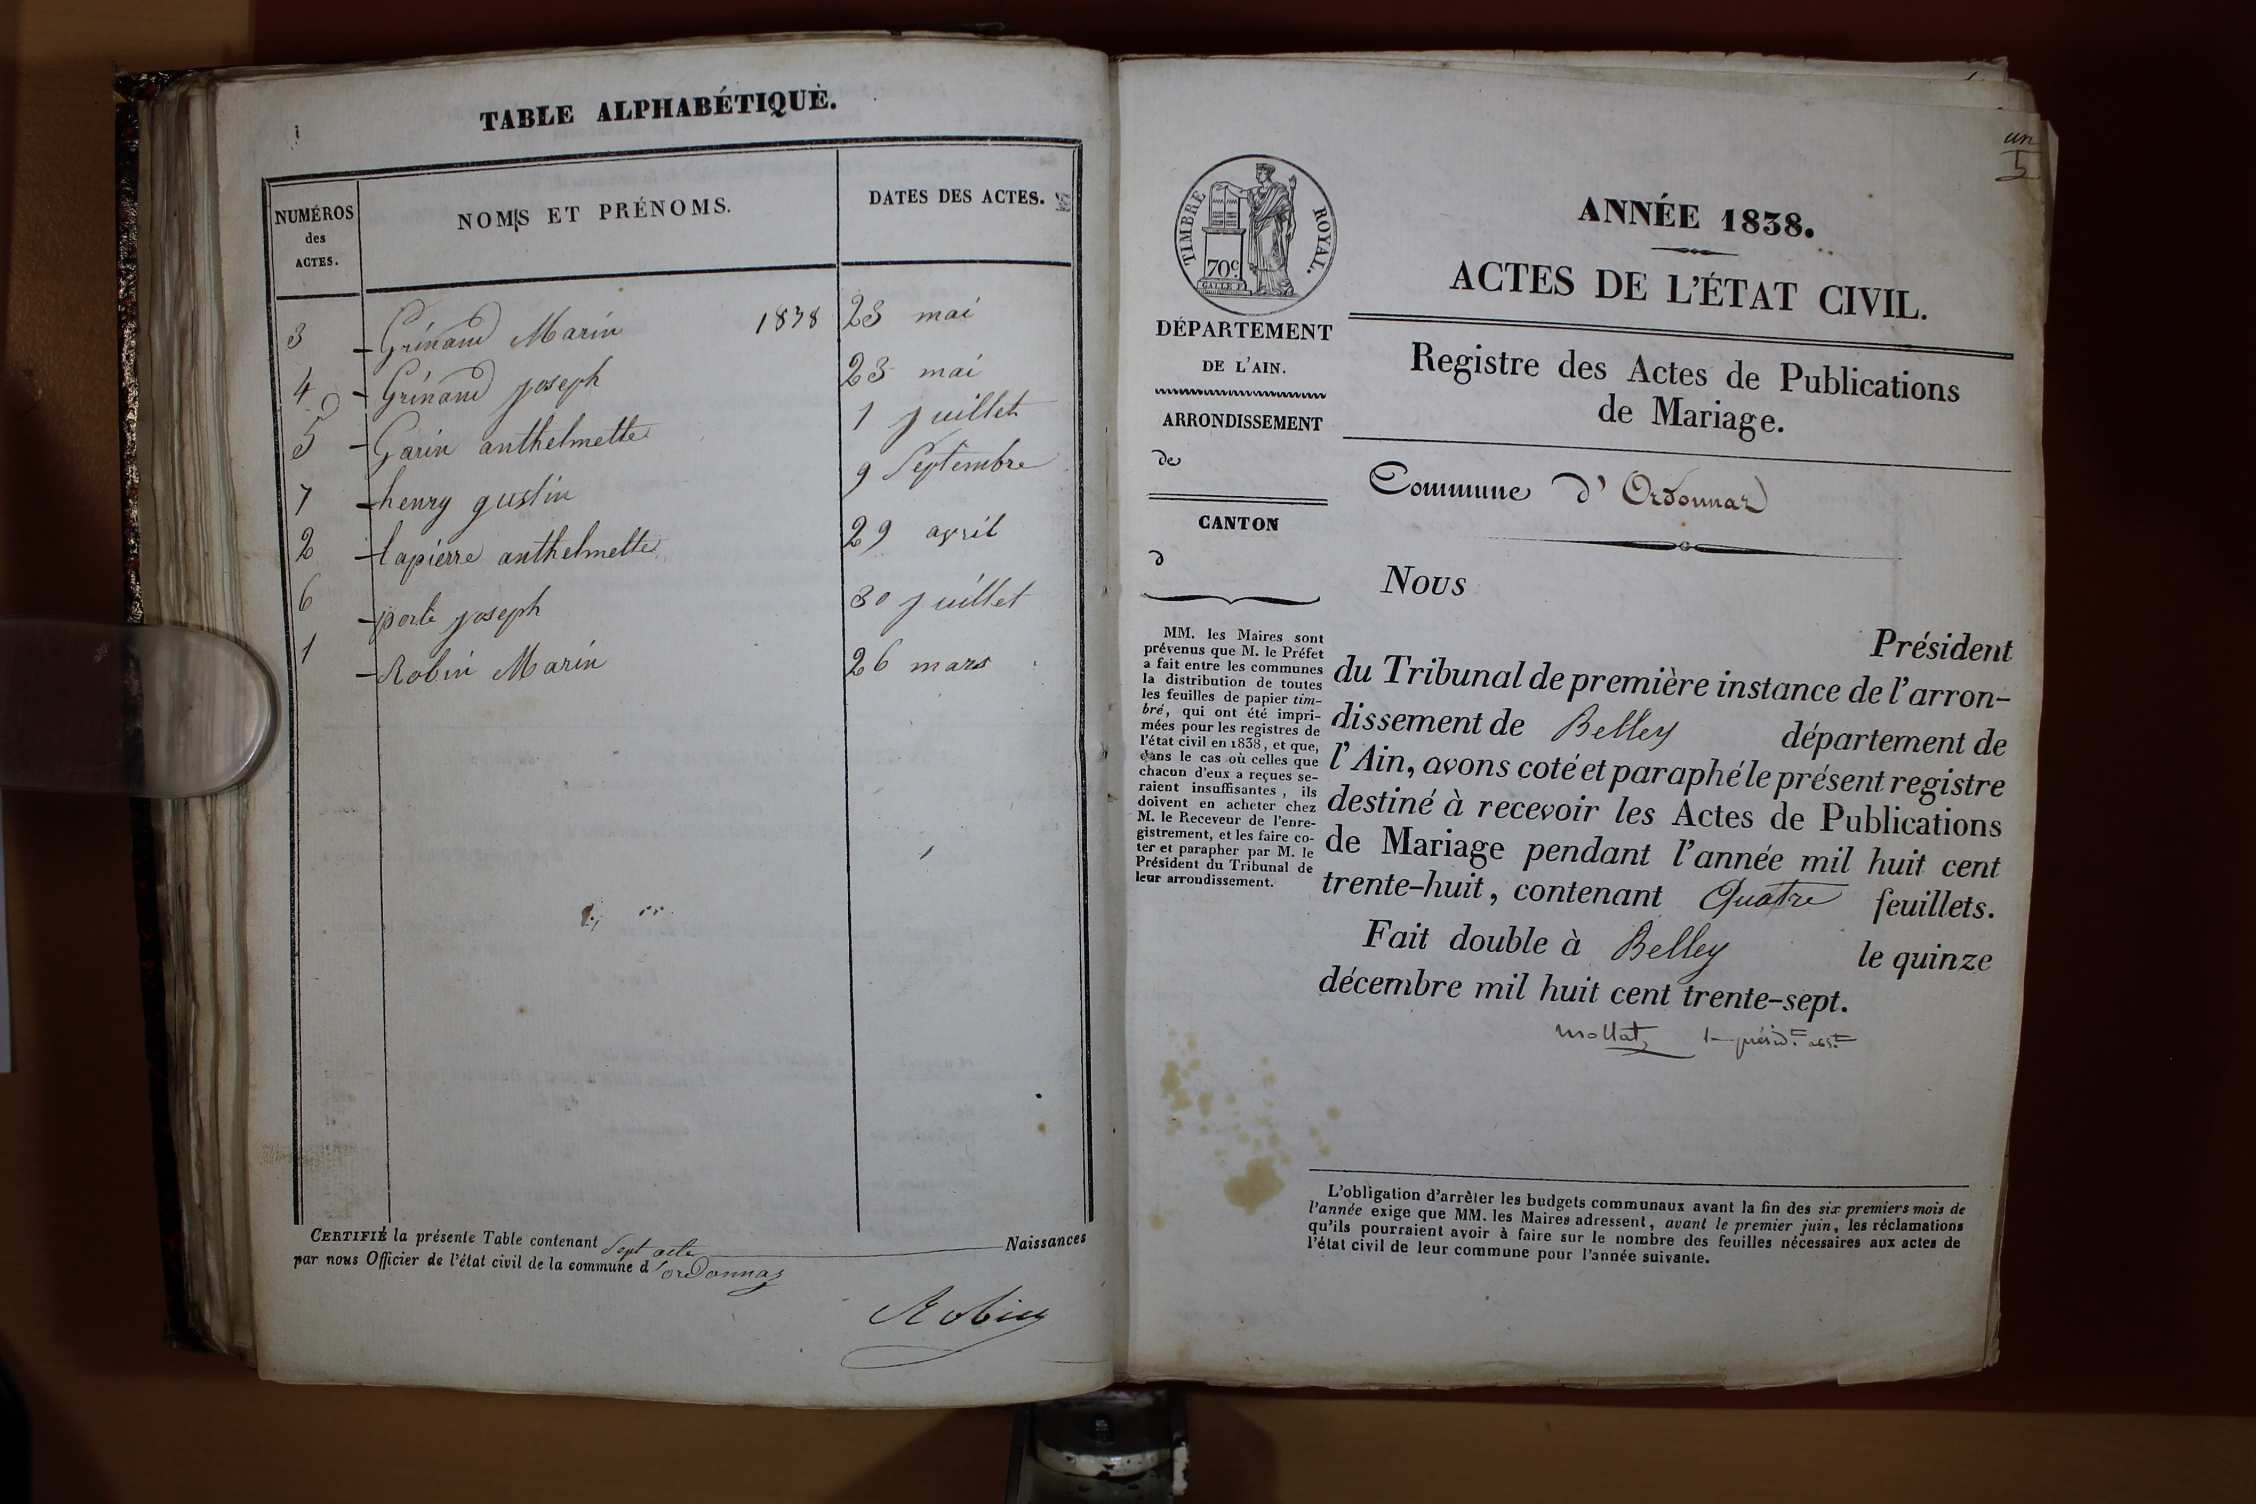 TABLE ALPHABÉTIQUE.
NUMÉROS des ACTES.
NOMS ET PRÉNOMS.
DATES DES ACTES.
3 Grinand Marin 1838 23 mai
4 Grinand joseph 23 mai
5 Garin anthelmette 1 juillet
7 henry gustin 9 Septembre
2 lapierre anthelmette 29 avril
6 porte joseph 30 juillet
1 Robin Marin 26 mars
CERTIFIÉ la présente Table contenant Sept acte Naissances
par nous Officier de l'état civil de la commune d'ordonnaz
Robin
un
TIMBRE ROYAL.
70c
GALLE F.
DÉPARTEMENT
DE L'AIN.
ARRONDISSEMENT
de
CANTON
d
MM. les Maires sont
prévenus que M. le Préfet
a fait entre les communes
la distribution de toutes
les feuilles de papier tim-
bré, qui ont été impri-
mées pour les registres de
l'état civil en 1838, et que,
dans le cas où celles que
chacun d'eux a reçues se-
raient insuffisantes, ils
doivent en acheter chez
M. le Receveur de l'enre-
gistrement, et les faire co-
ter et parapher par M. le
Président du Tribunal de
leur arrondissement.
ANNÉE 1838.
ACTES DE L'ÉTAT CIVIL.
Registre des Actes de Publications
de Mariage.
Commune d'Ordonnaz
Nous
Président
du Tribunal de première instance de l'arron-
dissement de Belley département de
l'Ain, avons coté et paraphé le présent registre
destiné à recevoir les Actes de Publications
de Mariage pendant l'année mil huit cent
trente-huit, contenant Quatre feuillets.
Fait double à Belley le quinze
décembre mil huit cent trente-sept.
Mollat
L'obligation d'arrêter les budgets communaux avant la fin des six premiers mois de
l'année exige que MM. les Maires adressent, avant le premier juin, les réclamations
qu'ils pourraient avoir à faire sur le nombre des feuilles nécessaires aux actes de
l'état civil de leur commune pour l'année suivante.